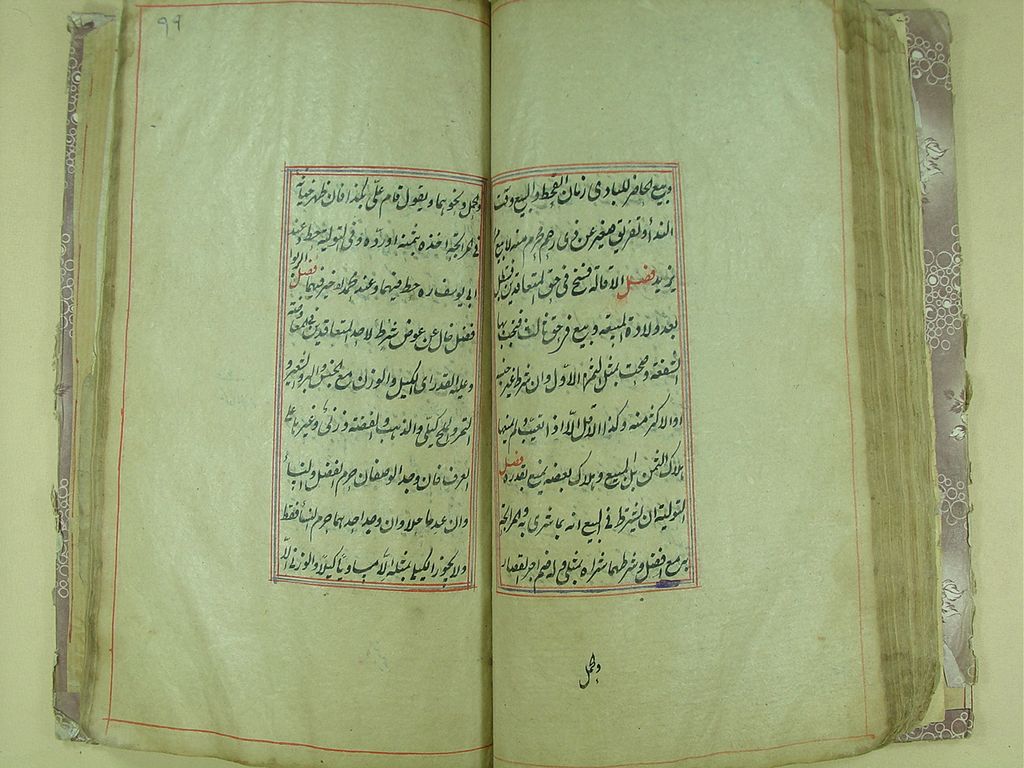 وبيع الحاضر للبادى زمان القحط والبيع وقت
الندأ وتفريق صغير عن ذى رحم محرم منه لا بيع من
يزيد فصل الاقالة فسخ فى حق المتعاقدين فتبطل
بعد ولادة المبيعة وبيع فى حق ثالث فتجب بها
الشفعة وصحت بمثل الثمن الاول وان شرط غير جنسه
او الاكثر منه وكذا الاقل الا اذا تعيب ولم يمنعها
هلاك الثمن بل المبيع وهلاك بعضه يمنع بقدره فصل
التولية ان يشترط فى البيع انه بما شرى به والمرابحة
به مع فضل وشرطهما شراه بمثلى وله ضم اجر القصار
والحمل
٩٩
والحمل ونحوهما ويقول قام على بكذا فان ظهر خيانة
فى المرابحة اخذه بثمنه او رده وفى التولية يحط وعند
ابى يوسف ره حط فيهما وعند محمد ره خير فيهما فصل الربوا
فضل خال عن عوض شرط لاحد المتعاقدين فى المعاوضة
وعلته القدر اى الكيل والوزن مع الجنس والبر والشعير و
التمر والملح كيلى والذهب والفضة وزنى وغيرها على
العرف فان وجد الوصفان حرم الفضل والنسأ
وان عدما حلا وان وجد احدهما حرم النسأ فقط
ولا يجوز الكيلى بمثله الا متساويا كيلا والوزنى الا